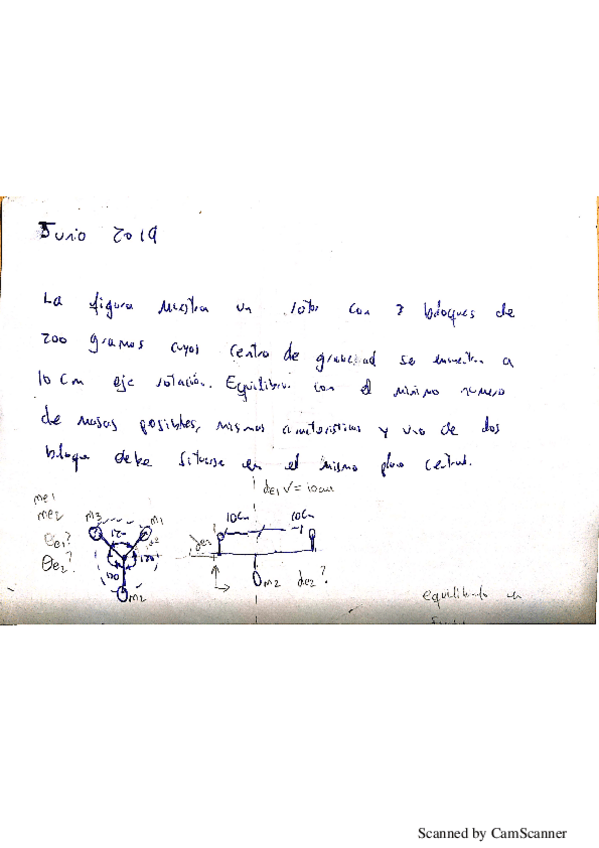 Junio 2019
La figura muestra un rotor con 3 bloques de
200 gramos cuyos centro de gravedad se encuentra a
10 cm eje rotación. Equilibrar con el minimo numero
de masas posibles, mismas caracteristicas y uno de dos
bloque debe situarse en el mismo plano central.
de1 r = 10cm
me1
me2
θe1?
θe2?
m3
m1
120
120
120
m2
10cm
10cm
de2
m2
de2?
equilibrado en
Scanned by CamScanner